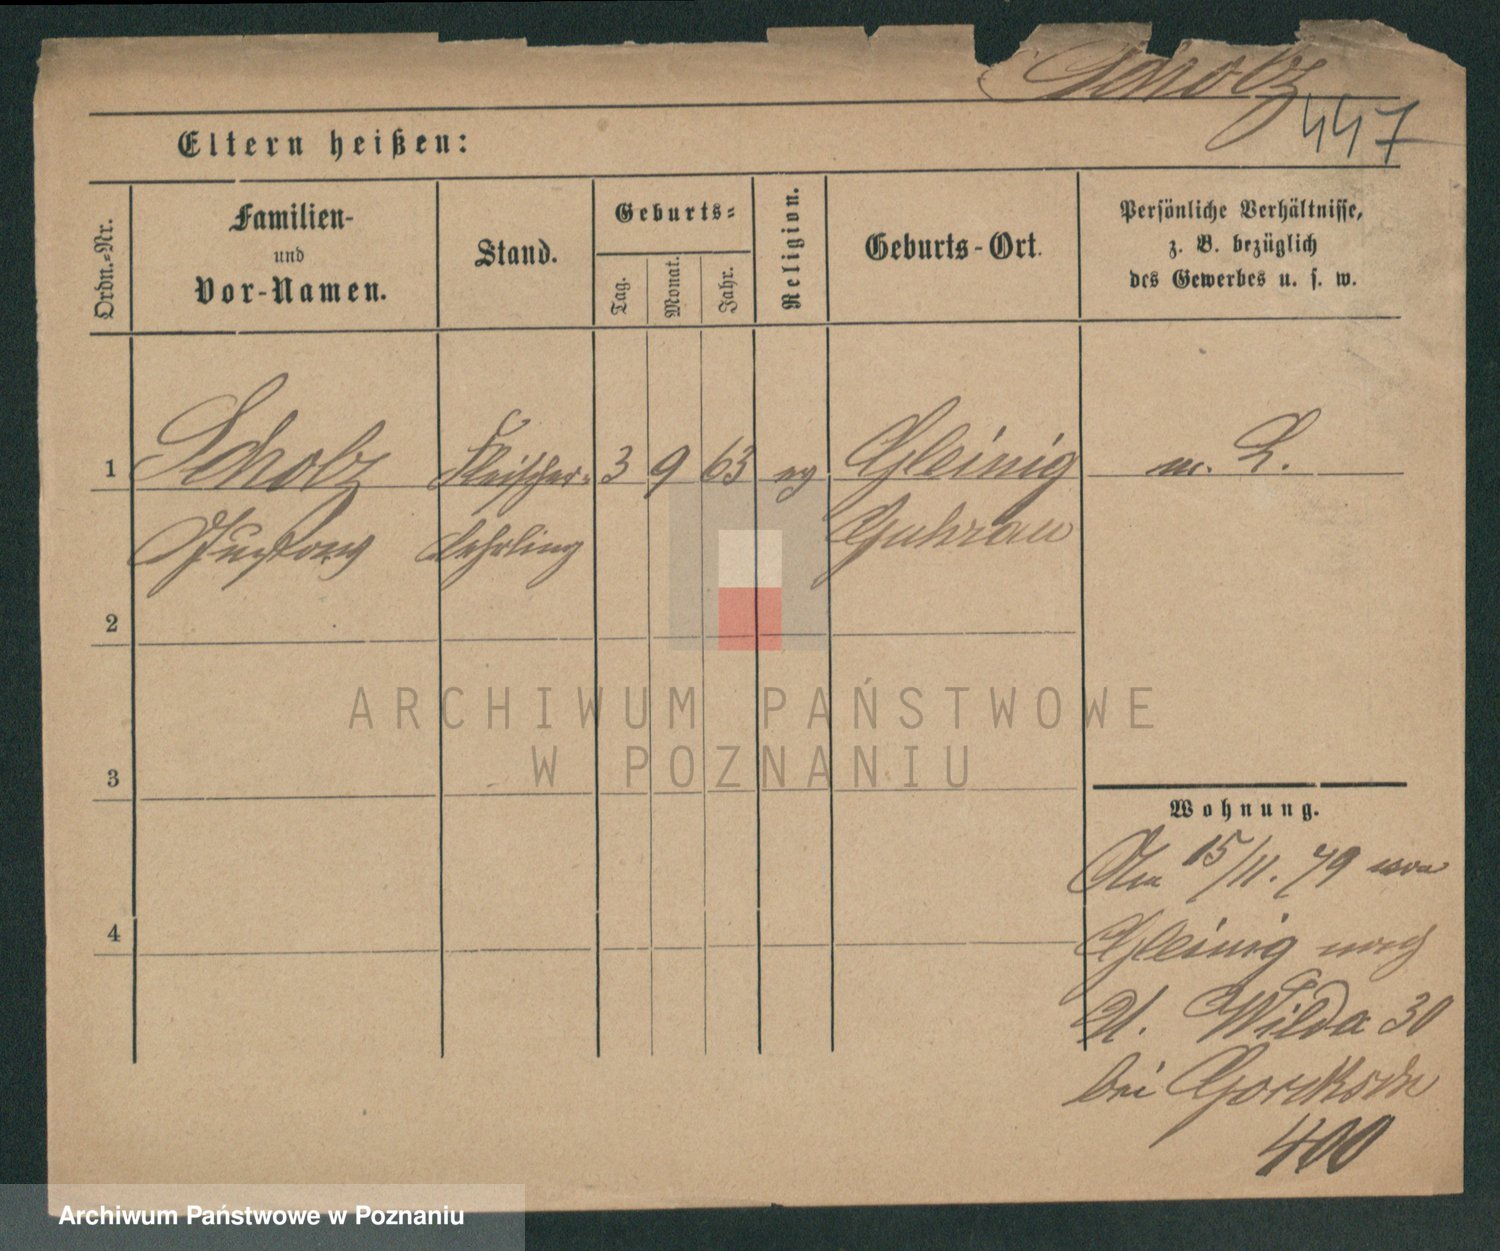 Scholz
447
Eltern heißen:
Ordn.-Nr.
Familien-
und
Vor-Namen.
Stand.
Geburts-
Tag.
Monat.
Jahr.
Religion.
Geburts-Ort.
Persönliche Verhältnisse,
z. B. bezüglich
des Gewerbes u. s. w.
1 Scholz Fleischer- 3 9 63 ev Gleinig m. L.
Gustav Lehrling Guhrau
2
3
4
Wohnung.
Am 15/11. 79 von
Gleinig nach
U. Wilda 30
bei
400
ARCHIWUM PAŃSTWOWE
W POZNANIU
Archiwum Państwowe w Poznaniu